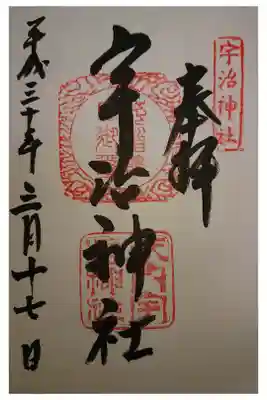 宇治神社
奉拝
宇治神社
平成三十年三月十七日